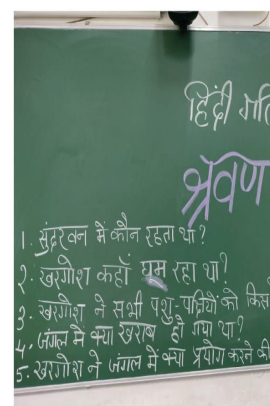 हिंदी गति
श्रवण
1. सुंदरवन में कौन रहता था?
2. खरगोश कहाँ घूम रहा था?
3. खरगोश ने सभी पशु-पक्षियों को किस
4. जंगल में क्या खराब हो गया था?
5. खरगोश ने जंगल में क्या प्रयोग करने की